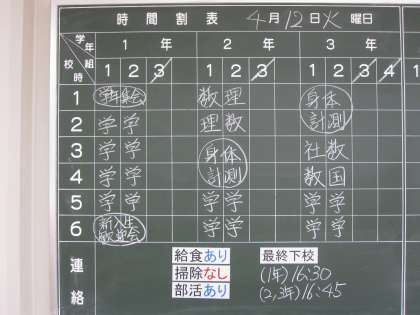 時間割表 4月12日火曜日
学年 1年 2年 3年
校時 組 1 2 3 1 2 3 1 2 3 4
1 学年集会 数 理 身体
2 学 学 理 数 計測
3 学 学 身体 社 数
4 学 学 計測 数 国
5 学 学 学 学 学 学
6 新入生歓迎会 学 学 学 学
連絡
給食あり 最終下校
掃除なし (1年) 16:30
部活あり (2,3年) 16:45